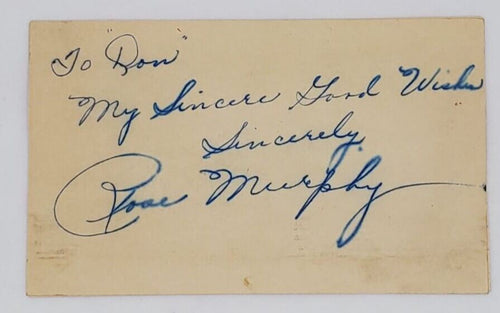 To "Don"
My Sincere Good Wishes
Sincerely
Rose Murphy